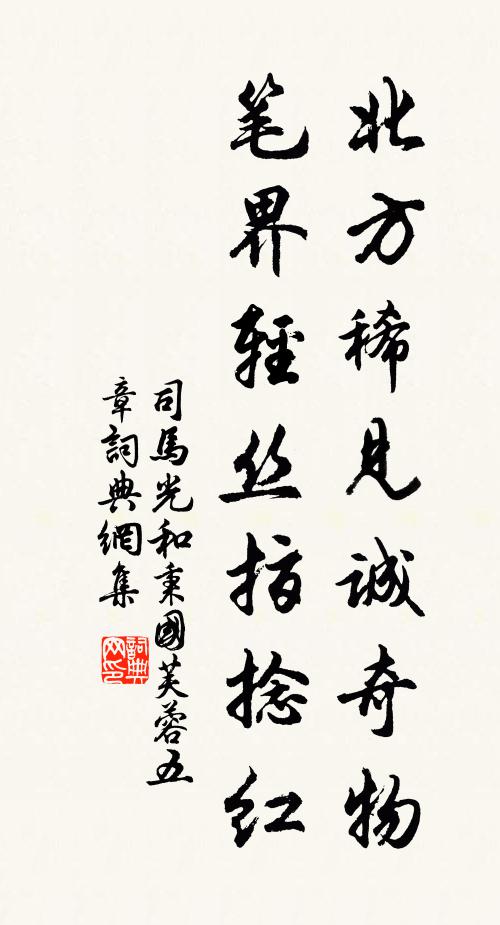 北方稀見誠奇物
笔界輕丝指捻红
司馬光和秉國芙蓉五
章詞典網集
詞典网印